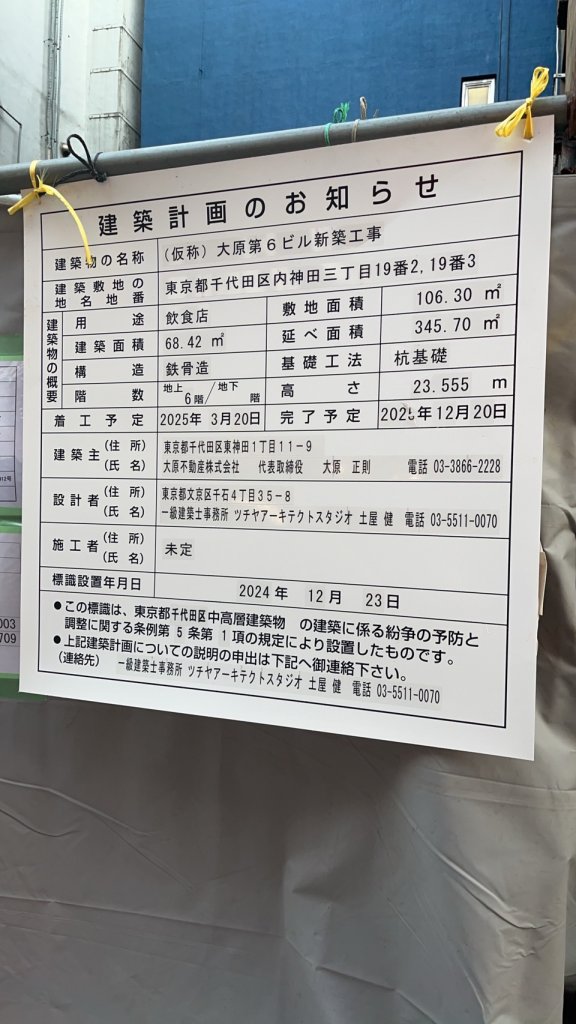 建築計画のお知らせ
建築物の名称 (仮称) 大原第6ビル新築工事
建築敷地の地名地番 東京都千代田区内神田三丁目19番2,19番3
建築物の概要
用途 飲食店 敷地面積 106.30 ㎡
建築面積 68.42 ㎡ 延べ面積 345.70 ㎡
構造 鉄骨造 基礎工法 杭基礎
階数 地上6階/地下 階 高さ 23.555 m
着工予定 2025年 3月20日 完了予定 2025年12月20日
建築主 (住所) 東京都千代田区東神田1丁目11-9
(氏名) 大原不動産株式会社 代表取締役 大原 正則 電話 03-3866-2228
設計者 (住所) 東京都文京区千石4丁目35-8
(氏名) 一級建築士事務所 ツチヤアーキテクトスタジオ 土屋 健 電話 03-5511-0070
施工者 (住所) (氏名) 未定
標識設置年月日 2024年 12月 23日
●この標識は、東京都千代田区中高層建築物 の建築に係る紛争の予防と
調整に関する条例第5条第1項の規定により設置したものです。
●上記建築計画についての説明の申出は下記へ御連絡下さい。
(連絡先) 一級建築士事務所 ツチヤアーキテクトスタジオ 土屋 健 電話 03-5511-0070
003
709